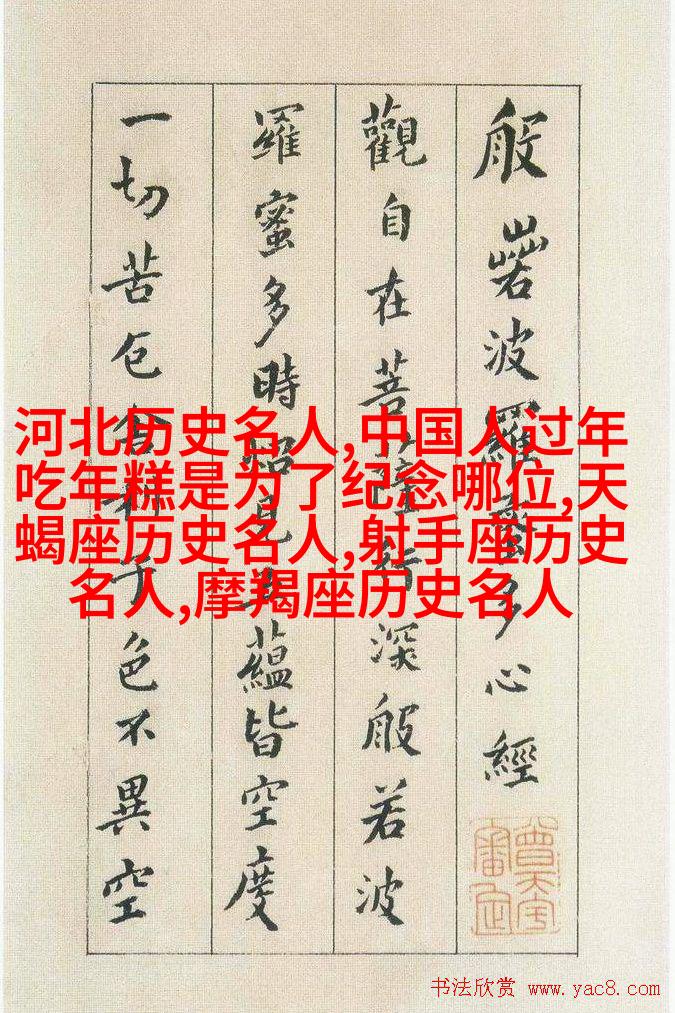 般若波羅蜜多心經
觀自在菩薩行深般若波
羅蜜多時照見五蘊皆空度
一切苦厄舍利子色不異空
河北历史名人,中国人过年
吃年糕是为了纪念哪位,天
蝎座历史名人,射手座历史
名人,摩羯座历史名人
书法欣赏 www.yac8.com